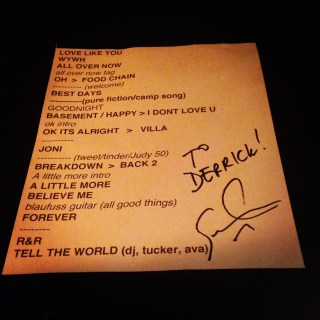 LOVE LIKE YOU
WYWH
ALL OVER NOW
all over now tag
OH > FOOD CHAIN
---------- (welcome)
BEST DAYS
----------(pure fiction/camp song)
GOODNIGHT
BASEMENT / HAPPY > I DONT LOVE U
ok intro
OK ITS ALRIGHT > VILLA
----------
JONI
---------- (tweet/tinder/Judy 50)
BREAKDOWN > BACK 2
A little more intro
A LITTLE MORE
BELIEVE ME
blaufuss guitar (all good things)
FOREVER
----------
R&R
TELL THE WORLD (dj, tucker, ava)
TO
DERRICK!